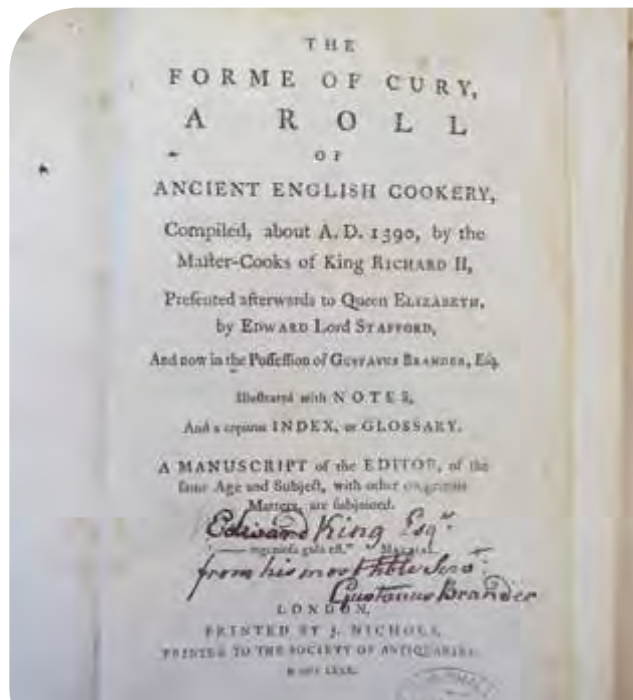 THE
FORME OF CURY,
A ROLL
OF
ANCIENT ENGLISH COOKERY,
Compiled, about A. D. 1390, by the
Master-Cooks of King RICHARD II,
Presented afterwards to Queen ELIZABETH,
by EDWARD Lord STAFFORD,
And now in the Possession of GUSTAVUS BRANDER, Esq.
Illustrated with NOTES,
And a copious INDEX, or GLOSSARY.
A MANUSCRIPT of the EDITOR, of the
same Age and Subject, with other congruous
Matters, are subjoined.
Edward King Esqr.
"—— ingeniosa gula est." MARTIAL.
from his most hble Servt.
Gustavus Brander
LONDON,
PRINTED BY J. NICHOLS,
PRINTER TO THE SOCIETY OF ANTIQUARIES.
M DCC LXXX.